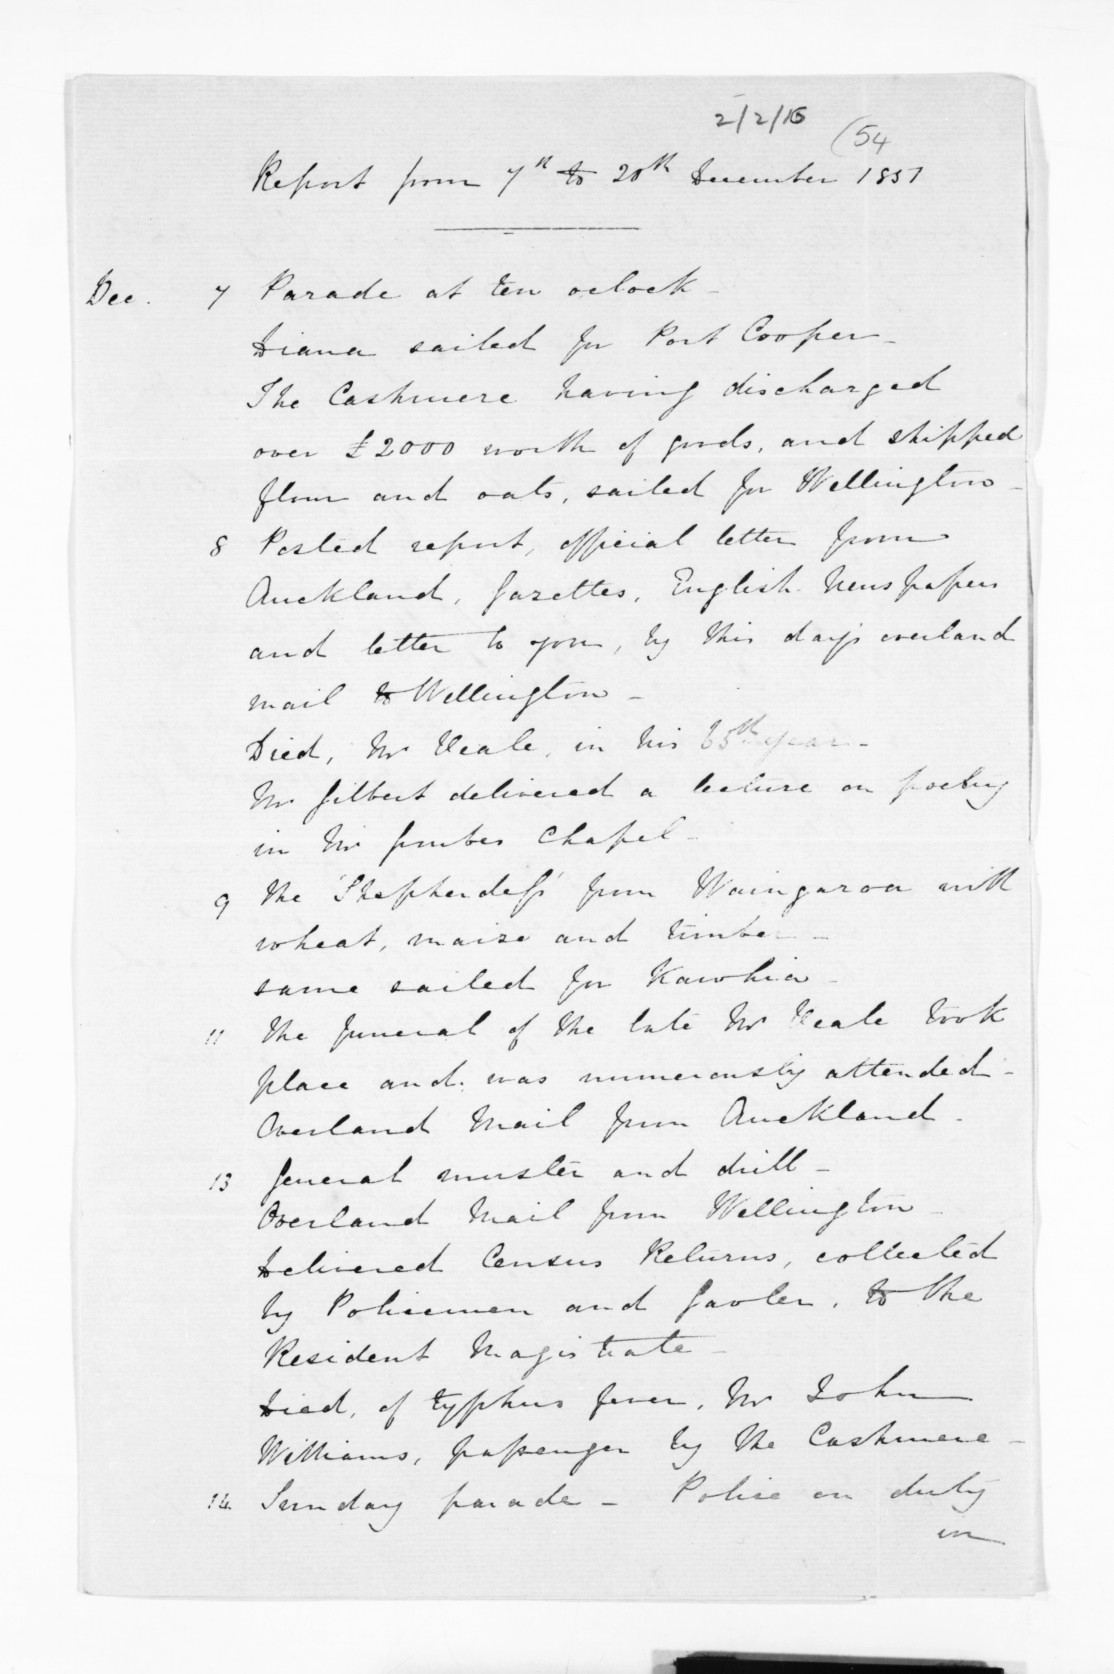 2/2/16
(54
Report from 7th to 20th December 1851
Dec. 7 Parade at ten oclock -
Diana sailed for Port Cooper -
The Cashmere having discharged
over £2000 worth of goods, and shipped
flour and oats, sailed for Wellington -
8 Posted report, official letter from
Auckland, Gazettes, English Newspapers
and letter to you, by this day's overland
mail to Wellington -
Died, Mr Veale, in his 65th year -
Mr Gilbert delivered a lecture on poetry
in Mr Chapel -
9 The 'Shepherdess' from Waingaroa with
wheat, maize and timber -
same sailed for Kawhia -
11 The funeral of the late Mr Veale took
place and was numerously attended -
Overland Mail from Auckland -
13 General muster and drill -
Overland Mail from Wellington -
Delivered Census Returns, collected
by Policemen and Gaoler, to the
Resident Magistrate -
Died, of typhus fever, Mr John
Williams, passenger by the Cashmere -
14 Sunday parade - Police on duty
in